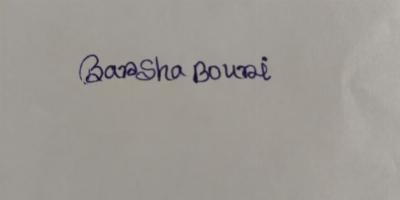 Barsha Bouri